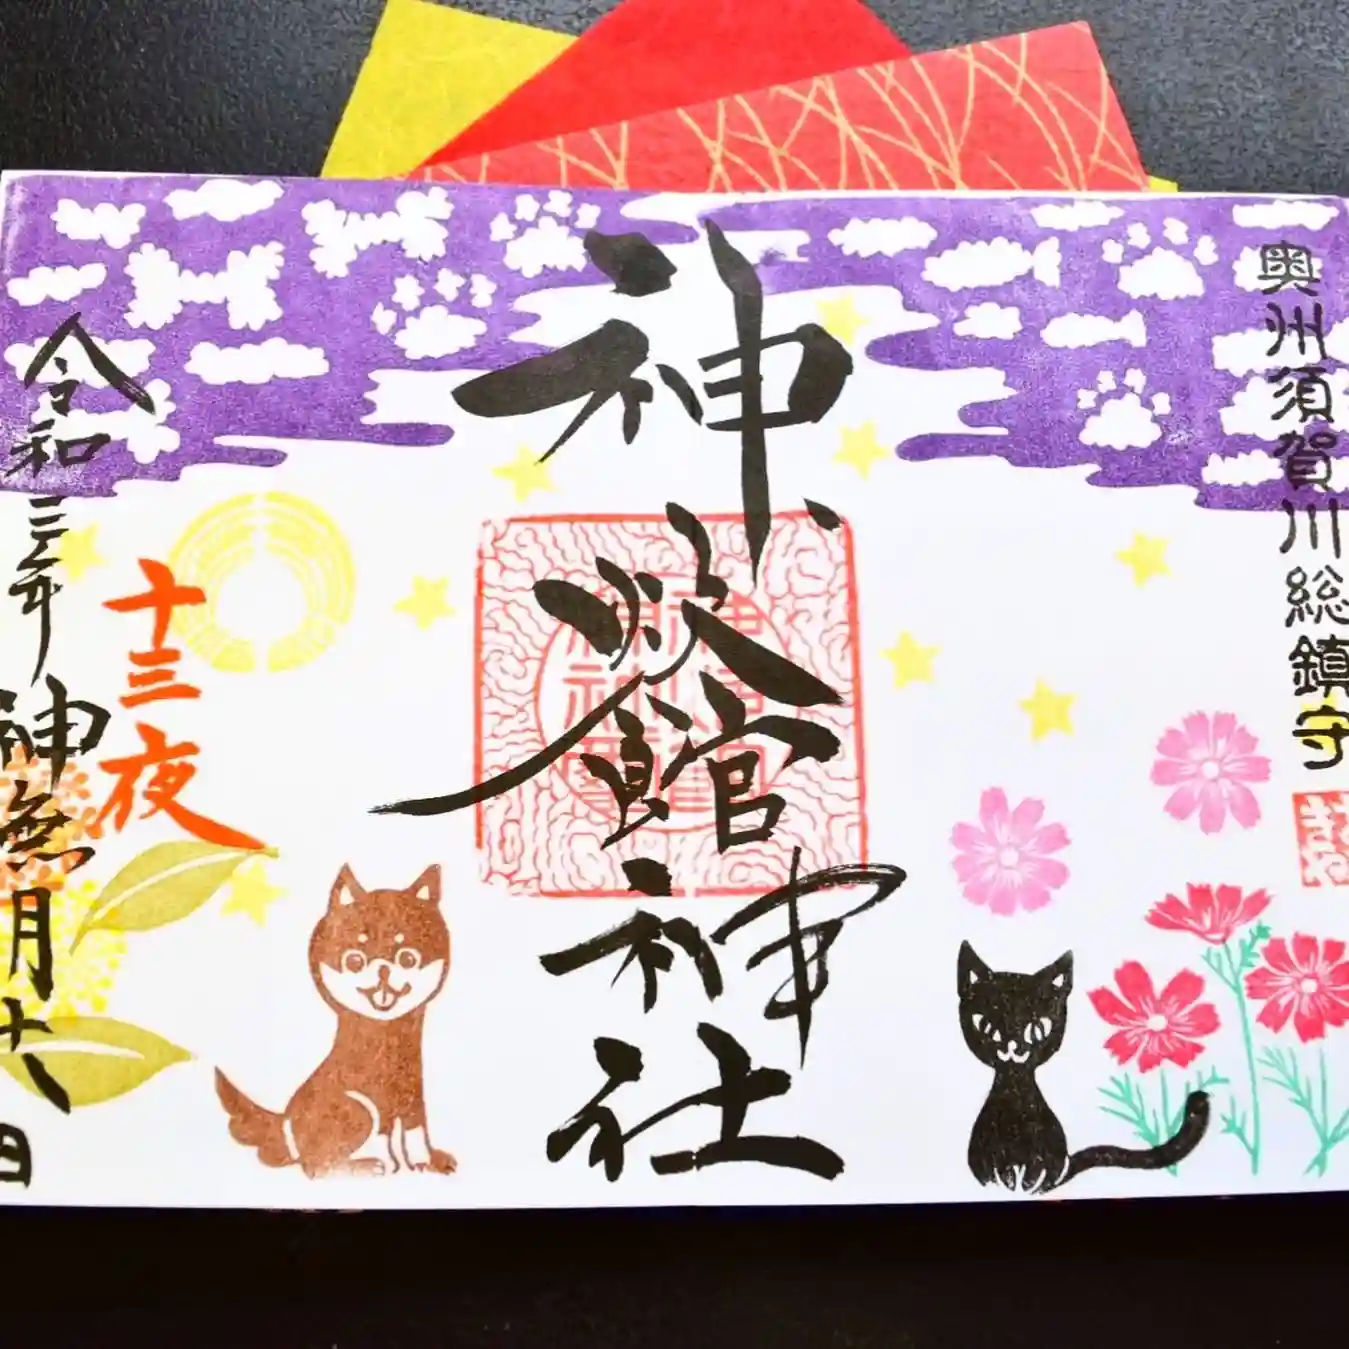 奥州須賀川総鎮守
神炊館神社
十三夜
令和三年神無月十八日